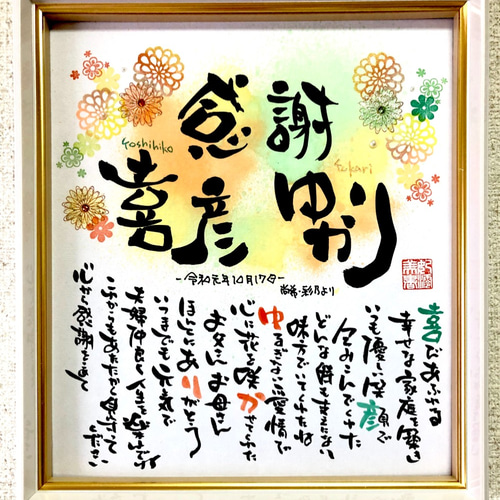 感謝
Yoshihiko
Yukari
喜彦
ゆかり
-令和元年10月17日-
彩乃より
喜びあふれる
幸せな家庭を築き
いつも優しい笑顔で
包みこんでくれた
どんな時も変わらない
味方でいてくれたね
ゆるぎない愛情で
心に花を咲かせてくれた
お父さん お母さん
ほんとにありがとう
いつまでも元気で
夫婦仲良く人生を楽しんで
これからもあたたかく見守って
ください
心から感謝をこめて